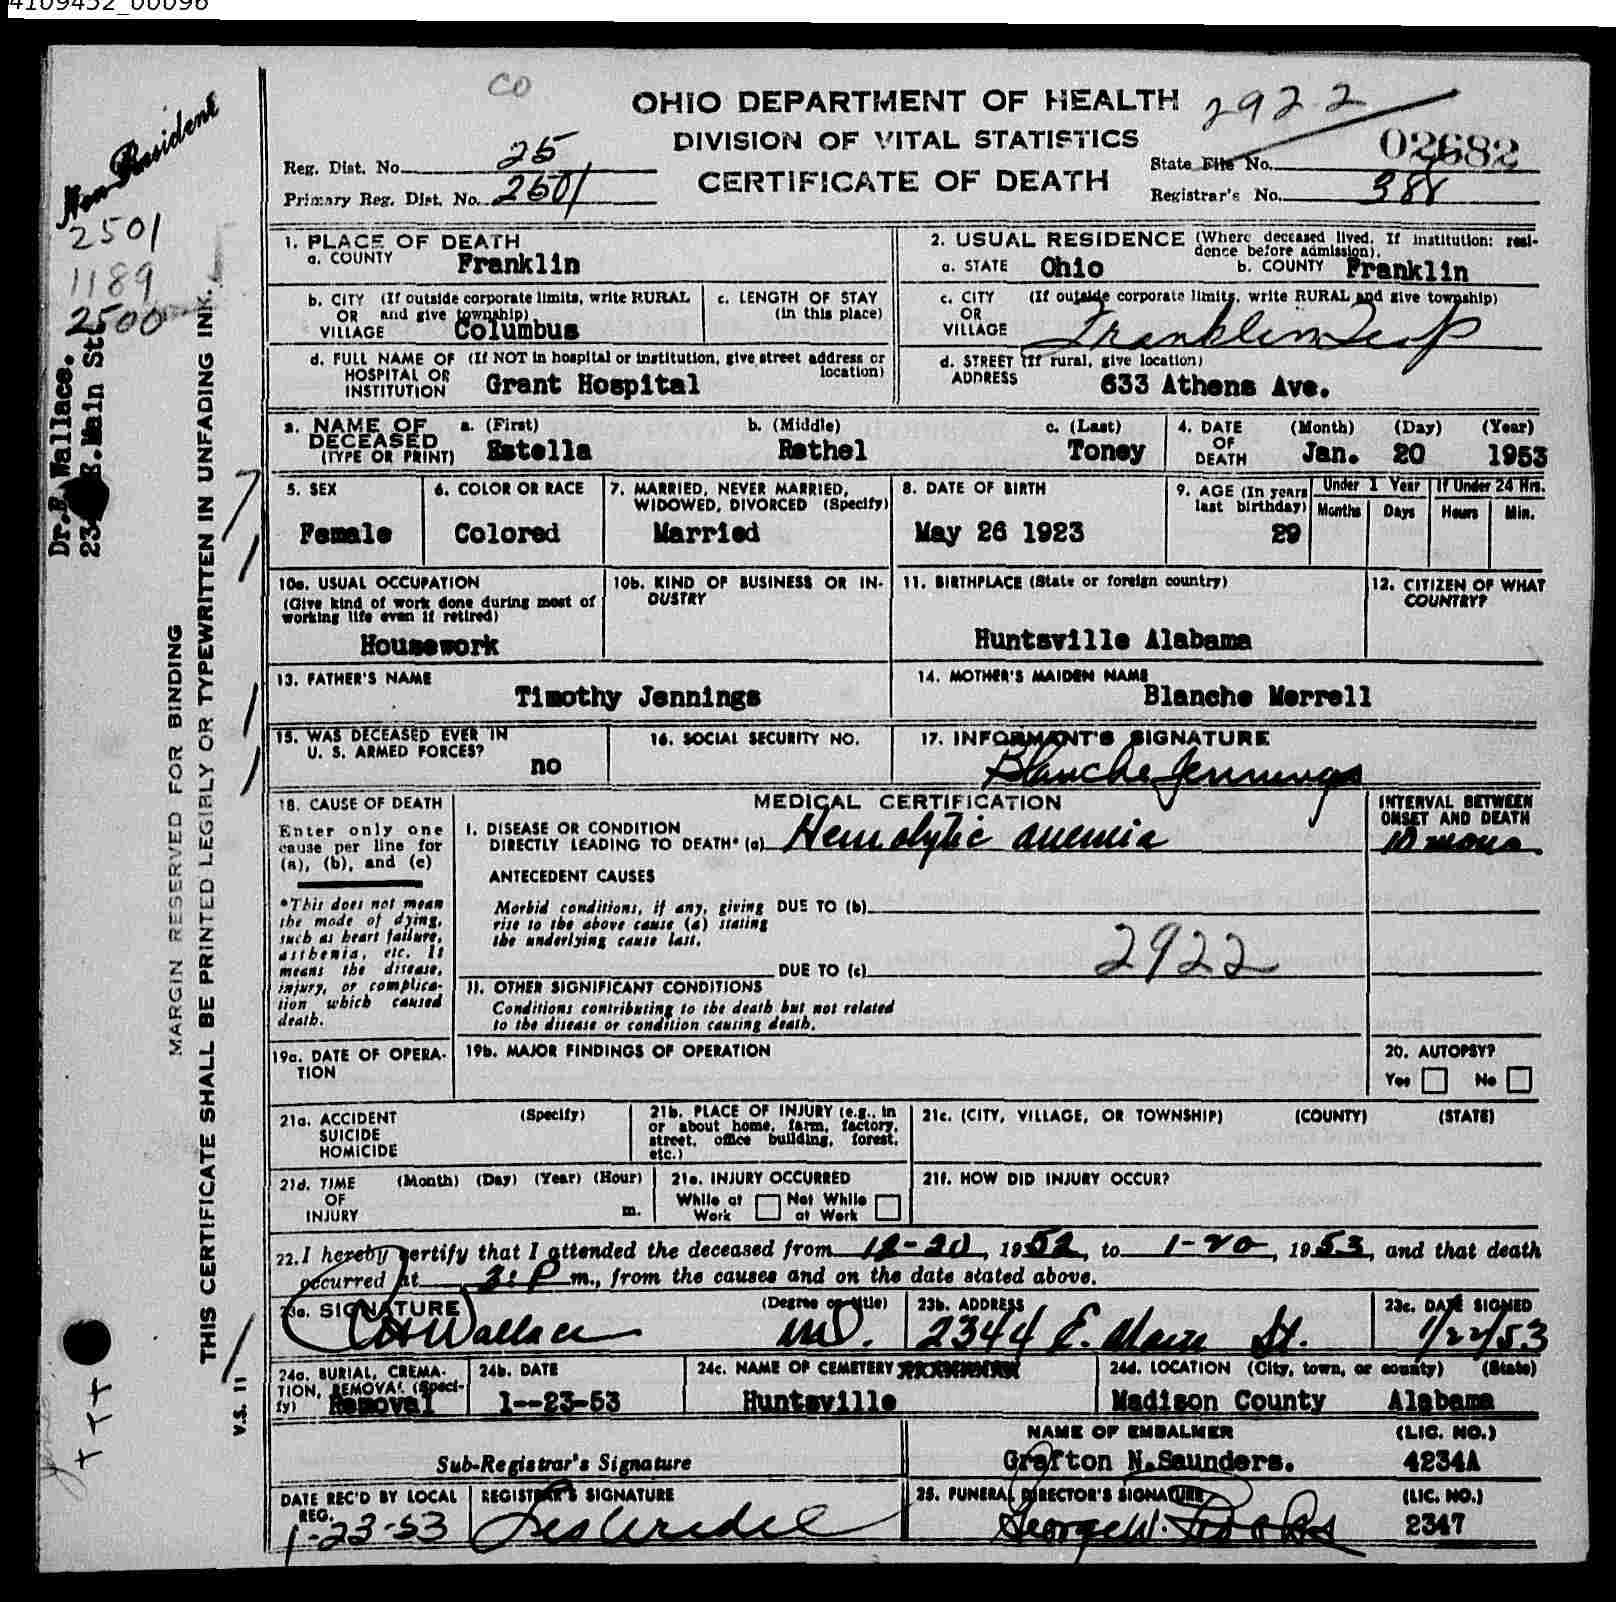 4109452_00096
CO
OHIO DEPARTMENT OF HEALTH
DIVISION OF VITAL STATISTICS
CERTIFICATE OF DEATH
2922
02682
Reg. Dist. No. 25
Primary Reg. Dist. No. 2501
State File No.
Registrar's No. 388
Non-Resident
2501
1189
2500
Dr. Wallace.
E.Main St
MARGIN RESERVED FOR BINDING
THIS CERTIFICATE SHALL BE PRINTED LEGIBLY OR TYPEWRITTEN IN UNFADING INK.
V.S. 11
1. PLACE OF DEATH
a. COUNTY Franklin
b. CITY (If outside corporate limits, write RURAL
OR and give township)
VILLAGE Columbus
c. LENGTH OF STAY
(in this place)
d. FULL NAME OF (If NOT in hospital or institution, give street address or
HOSPITAL OR location)
INSTITUTION Grant Hospital
2. USUAL RESIDENCE (Where deceased lived. If institution: resi-
dence before admission).
a. STATE Ohio b. COUNTY Franklin
c. CITY (If outside corporate limits, write RURAL and give township)
OR
VILLAGE Franklin Twp
d. STREET (If rural, give location)
ADDRESS 633 Athens Ave.
3. NAME OF DECEASED a. (First) b. (Middle) c. (Last)
(TYPE OR PRINT) Estella Rethel Toney
4. DATE OF DEATH (Month) (Day) (Year)
Jan. 20 1953
5. SEX
Female
6. COLOR OR RACE
Colored
7. MARRIED, NEVER MARRIED,
WIDOWED, DIVORCED (Specify)
Married
8. DATE OF BIRTH
May 26 1923
9. AGE (In years
last birthday)
29
Under 1 Year
Months Days
If Under 24 Hrs.
Hours Min.
10a. USUAL OCCUPATION
(Give kind of work done during most of
working life even if retired)
Housework
10b. KIND OF BUSINESS OR IN-
DUSTRY
11. BIRTHPLACE (State or foreign country)
Huntsville Alabama
12. CITIZEN OF WHAT
COUNTRY?
13. FATHER'S NAME
Timothy Jennings
14. MOTHER'S MAIDEN NAME
Blanche Merrell
15. WAS DECEASED EVER IN
U. S. ARMED FORCES?
no
16. SOCIAL SECURITY NO.
17. INFORMANT'S SIGNATURE
Blanche Jennings
18. CAUSE OF DEATH
Enter only one
cause per line for
(a), (b), and (c)
*This does not mean
the mode of dying,
such as heart failure,
asthenia, etc. It
means the disease,
injury, or complica-
tion which caused
death.
MEDICAL CERTIFICATION
I. DISEASE OR CONDITION
DIRECTLY LEADING TO DEATH* (a) Hemolytic anemia
INTERVAL BETWEEN
ONSET AND DEATH
10 mons
ANTECEDENT CAUSES
Morbid conditions, if any, giving DUE TO (b)
rise to the above cause (a) stating
the underlying cause last.
DUE TO (c) 2922
II. OTHER SIGNIFICANT CONDITIONS
Conditions contributing to the death but not related
to the disease or condition causing death.
19a. DATE OF OPERA-
TION
19b. MAJOR FINDINGS OF OPERATION
20. AUTOPSY?
Yes No
21a. ACCIDENT (Specify)
SUICIDE
HOMICIDE
21b. PLACE OF INJURY (e.g., in
or about home, farm, factory,
street, office building, forest,
etc.)
21c. (CITY, VILLAGE, OR TOWNSHIP) (COUNTY) (STATE)
21d. TIME (Month) (Day) (Year) (Hour)
OF
INJURY m.
21e. INJURY OCCURRED
While at Work Not While at Work
21f. HOW DID INJURY OCCUR?
22. I hereby certify that I attended the deceased from 12-20, 1952, to 1-20, 1953, and that death
occurred at 3:P m., from the causes and on the date stated above.
23a. SIGNATURE (Degree or title)
Wallace MD.
23b. ADDRESS
2344 E. Main St.
23c. DATE SIGNED
1/22/53
24a. BURIAL, CREMA-
TION, REMOVAL (Speci-
fy) Removal
24b. DATE
1--23-53
24c. NAME OF CEMETERY
Huntsville
24d. LOCATION (City, town, or county) (State)
Madison County Alabama
Sub-Registrar's Signature
NAME OF EMBALMER (LIC. NO.)
Grafton N.Saunders. 4234A
DATE REC'D BY LOCAL
REG.
1-23-53
REGISTRAR'S SIGNATURE
25. FUNERAL DIRECTOR'S SIGNATURE (LIC. NO.)
George W. 2347